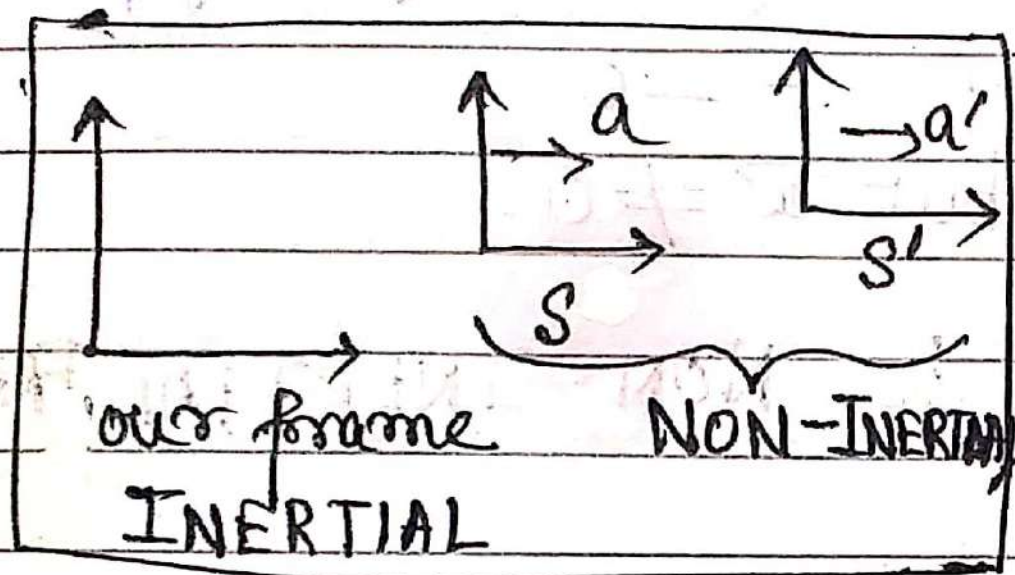 a
a'
S
S'
our frame
NON-INERTIAL
INERTIAL